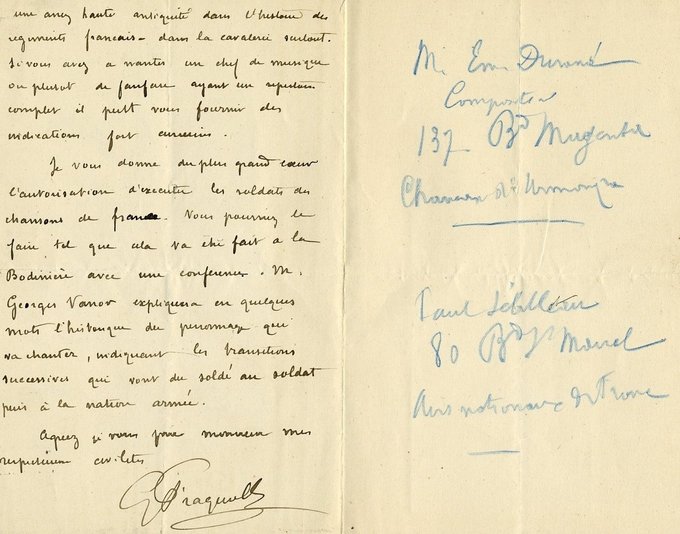 une assez haute antiquité dans l'histoire des
regiments francais - dans la cavalerie surtout.
Si vous avez a nantes un chef de musique
ou plutot de fanfare ayant un repertoire
complet il peut vous fournir des
indications fort curieuses.
Je vous donne du plus grand cœur
l'autorisation d'executer les soldats des
chansons de france. Vous pourriez le
faire tel que cela va etre fait a la
Bodinière avec une conference. M.
Georges Vanor expliquera en quelques
mots l'historique du personnage qui
va chanter, indiquant les transitions
successives qui vont du soldé au soldat
puis à la nation armée.
Agreez je vous prie monsieur mes
respectueuses civilités
M.
Compositeur
137 Bd Magenta
Chansons
Paul Sébilleau
80 Bd St Marcel
Airs nationaux de France